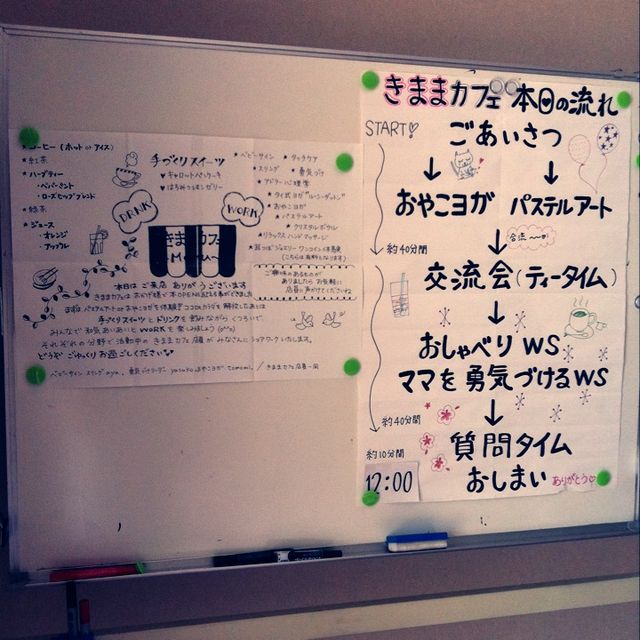 コーヒー (ホット or アイス)
紅茶
ハーブティー
・ペパーミント
・ローズヒップブレンド
緑茶
ジュース
・オレンジ
・アップル
手づくりスイーツ
♥キャロットパンケーキ
♥はちみつレモンゼリー
DRINK
WORK
きままカフェ
Menu
★ベビーサイン
★タッチケア
★スリング
★勇気づけ
★アドラー心理学
★おやこヨガ
★パステルアート
★クリスタルボウル
★リラックスハンドマッサージ
(こちらは有料となります)
ご興味のあるものが
ありましたら お気軽に
店員に声がけくださいね
本日は ご来店 ありがとうございます
手づくりスイーツとドリンクを飲みながら くつろいで、
みんなで 和気あいあいと WORKを楽しみましょう (o^^o)
それぞれの分野で活動中の きままカフェ店員が みなさんに シェアワークいたします。
どうぞ ごゆっくり お過ごしください♪
きままカフェ 本日の流れ
START!
ごあいさつ
↓ ↓
おやこヨガ パステルアート
約40分間
↓ 合流〜
交流会(ティータイム)
↓
おしゃべり WS
ママを勇気づけるWS
約40分間
↓
約10分間
質問タイム
12:00
おしまい ありがとう♡